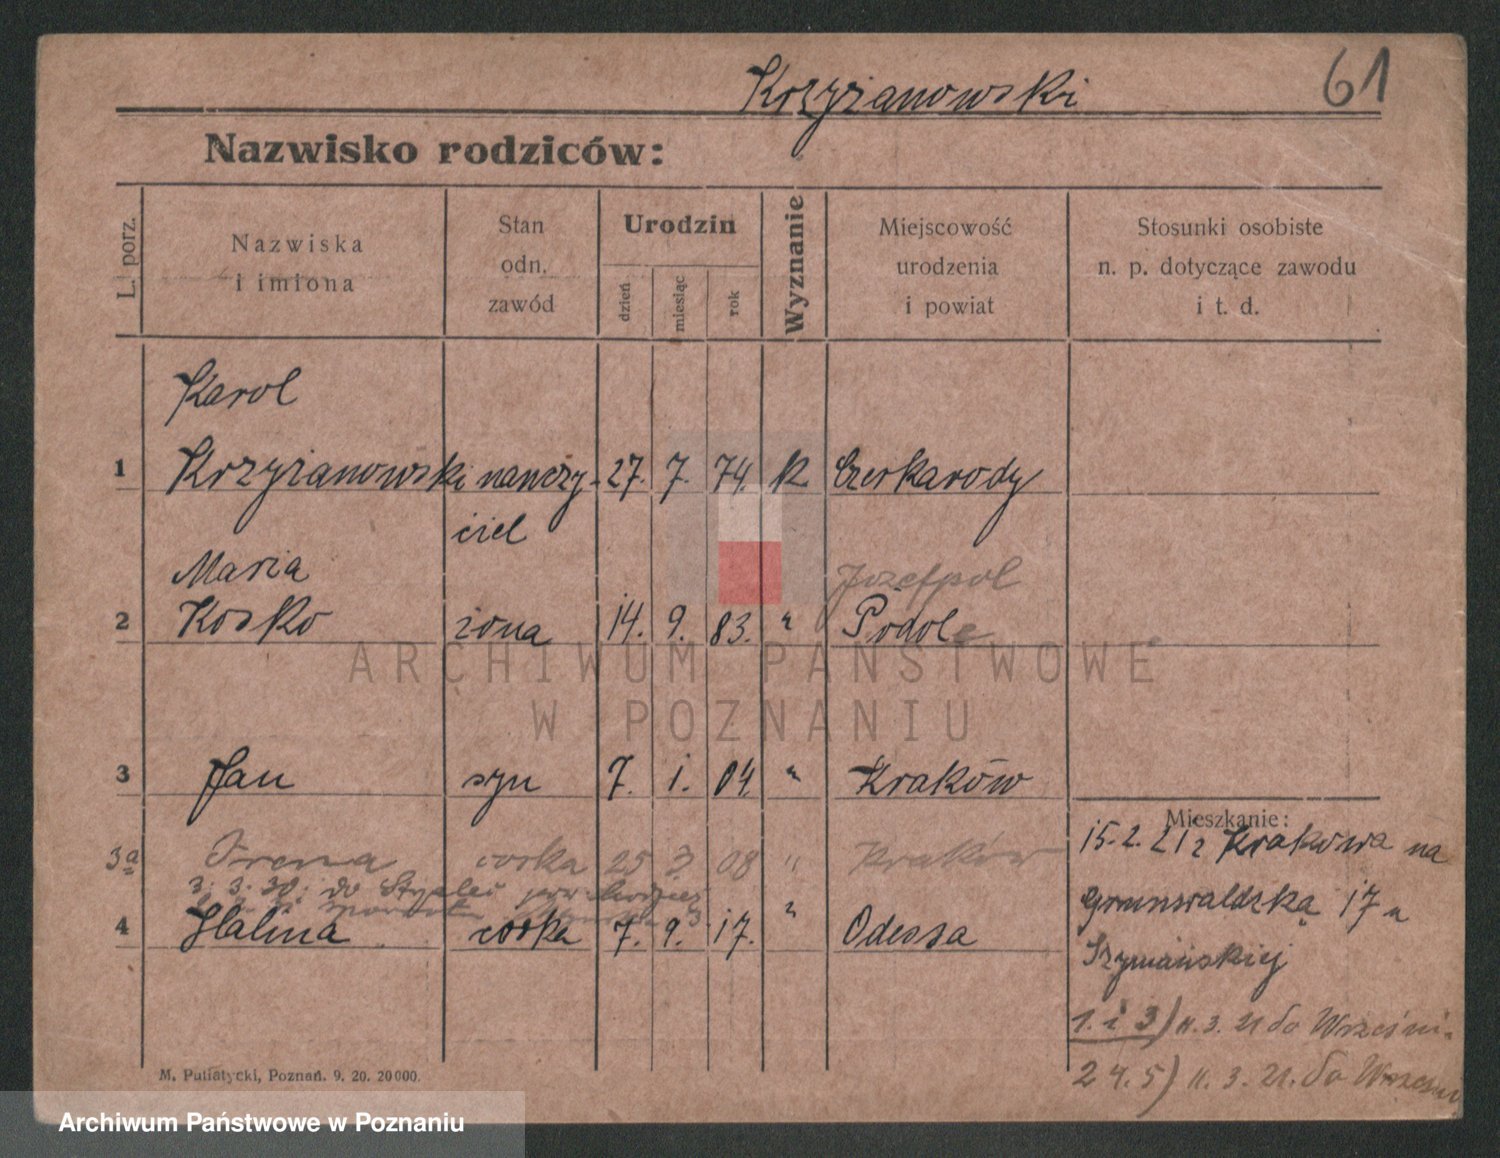 Krzyżanowski
61
Nazwisko rodziców:
L. porz.
Nazwiska
i imiona
Stan
odn.
zawód
Urodzin
dzień
miesiąc
rok
Wyznanie
Miejscowość
urodzenia
i powiat
Stosunki osobiste
n. p. dotyczące zawodu
i t. d.
Karol
1 Krzyżanowski nauczy- 27. 7. 74. k
ciel
Maria
Józefpol
2 Kosko żona 14. 9. 83. " Podole
3 Jan syn 7. 1. 04. " Kraków
Mieszkanie:
15.2.21 z Krakowa na
3a Irena corka 25 3 08 " Kraków
3. 3. 30. do
Grunwaldzką 17 u
4 Halina corka 7. 9. 17. " Odessa
Szymańskiej
1. i 3) 11. 3. 21 do Wrześni.
2 4. 5) 11. 3. 21. do Wrześni
M. Putiatycki, Poznań. 9. 20. 20000.
ARCHIWUM PAŃSTWOWE
W POZNANIU
Archiwum Państwowe w Poznaniu